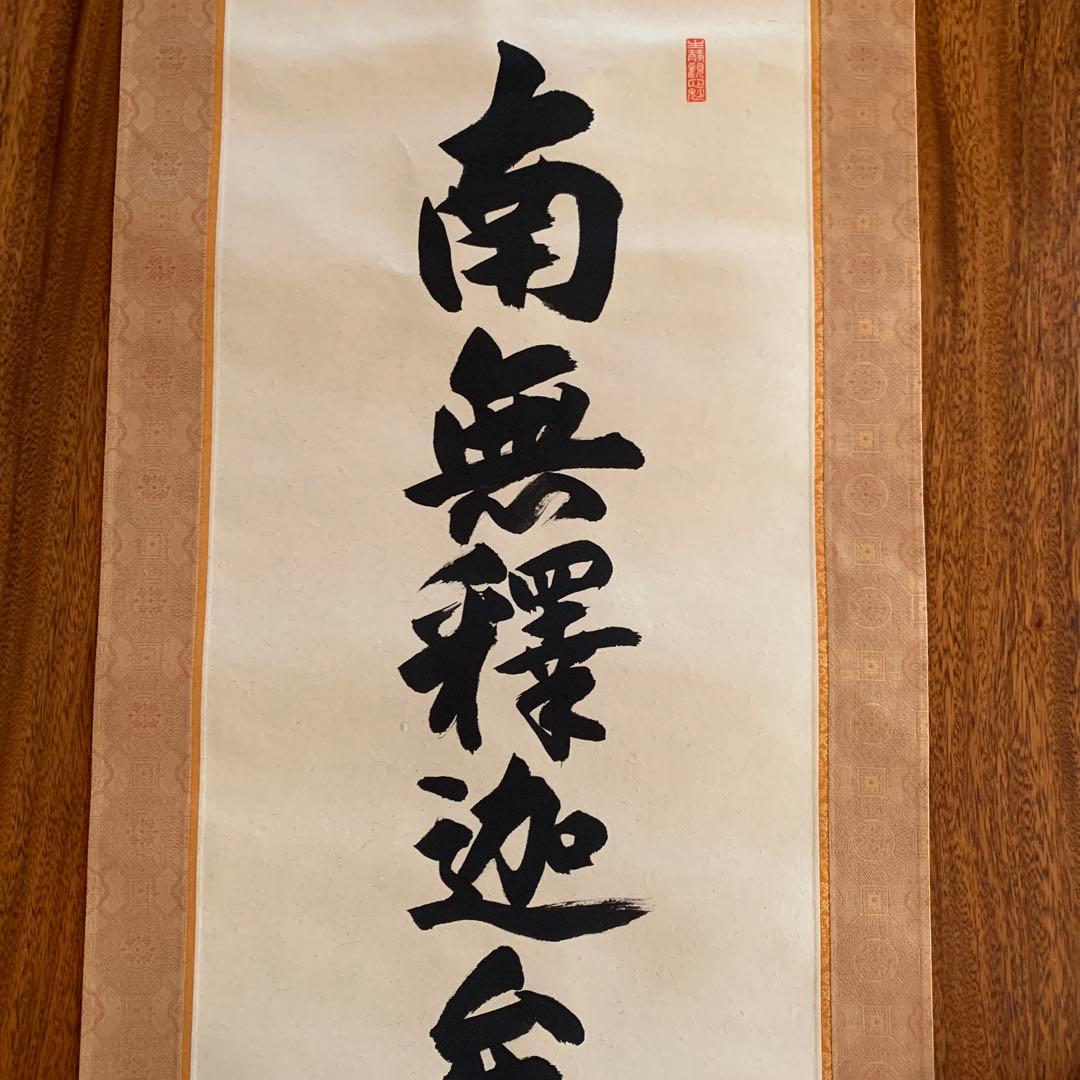 南無釋迦牟